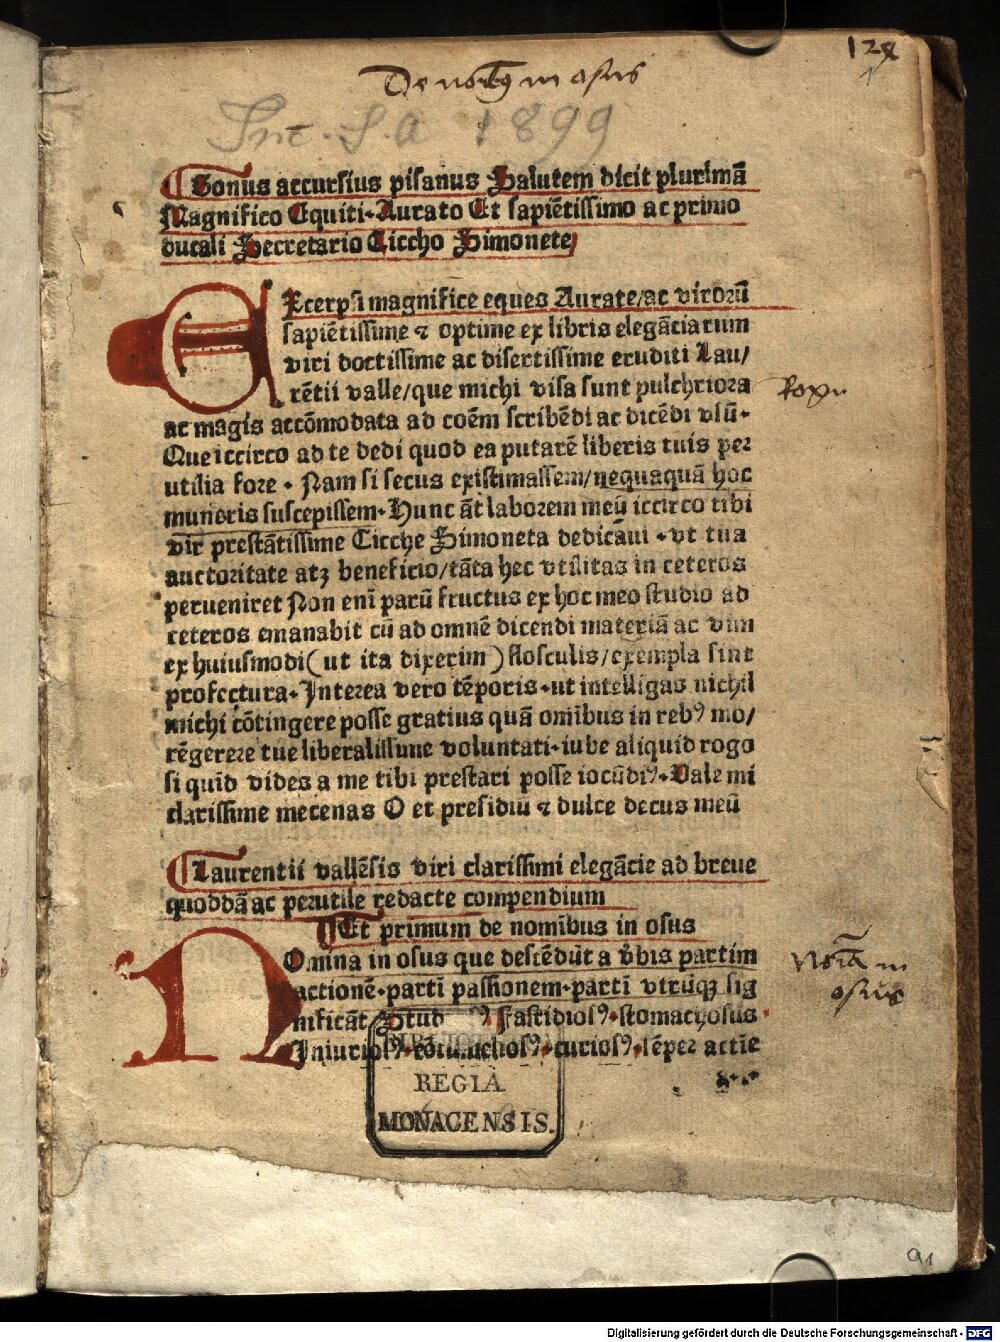 128
De no in osus
Inc. s. a 1899
Bonus accursius pisanus Salutem dicit plurimā
Magnifico Equiti. Aurato Et sapiētissimo ac primo
ducali Secretario Ciccho Simonete
EXcerpsi magnifice eques Aurate/ac virorū
sapiētissime ⁊ optime ex libris elegāciarum
viri doctissime ac disertissime eruditi Lau/
rētii valle/que michi visa sunt pulchriora
ac magis accōmodata ad coēm scribēdi ac dicēdi vsū.
Que iccirco ad te dedi quod ea putarē liberis tuis per
utilia fore. Nam si secus existimassem/nequaquā hoc
muneris suscepissem. Hunc āt laborem meū iccirco tibi
vir prestātissime Cicche Simoneta dedicāui. vt tua
auctoritate atꝫ beneficio/tāta hec vtilitas in ceteros
perueniret Non enī parū fructus ex hoc meo studio ad
ceteros emanabit cū ad omnē dicendi materiā ac vim
ex huiusmodi (ut ita dixerim) flosculis/exempla sint
profectura. Interea vero tēporis. ut intelligas nichil
michi cōtingere posse gratius quā omībus in rebꝰ mo/
rēgerere tue liberalissime voluntati. iube aliquid rogo
si quid vides a me tibi prestari posse iocūdiꝰ. Vale mi
clarissime mecenas O et presidiū ⁊ dulce decus meū
Laurentii vallēsis viri clarissimi elegācie ad breue
quoddā ac perutile redacte compendium
Et primum de nomībus in osus
NOmina in osus que descēdūt a v̄bis partim
actionē. partī passionem. partī utrūqꝫ sig
nificāt Stud ꝰ Fastidiosꝰ. stomachosus
Iniuriosꝰ. cōtumeliosꝰ. curiosꝰ. sēper actiē
in
osus
REGIA
MONACENSIS.
91
Digitalisierung gefördert durch die Deutsche Forschungsgemeinschaft - DFG